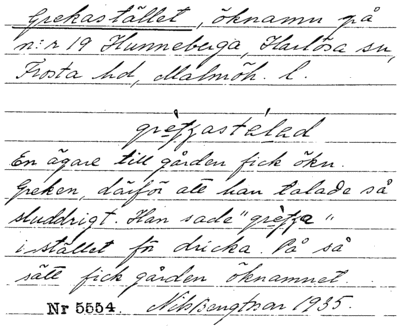 Grekastället, öknamn på
n:r 19 Hunneberga, Harlösa sn,
Frosta hd, Malmöh. l.
En ägare till gården fick ökn.
Greken, därför att han talade så
sluddrigt. Han sade "
i stället för dricka. På så
sätt fick gården öknamnet.
Nr 5554. Nils Bengtsson 1935.